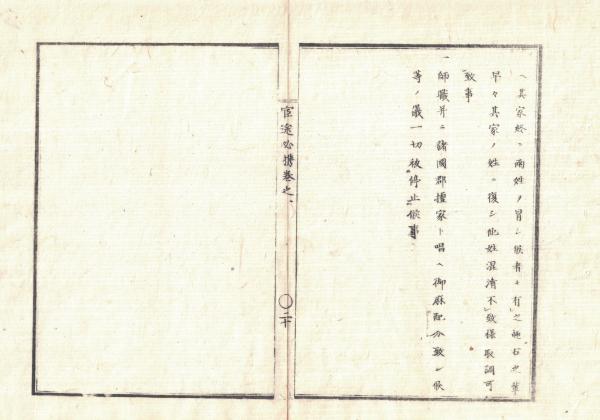 ヘ其家終ニ両姓ノ冒シ候者モ有之
早々其家ノ姓ニ復シ他姓混淆不致様取調可
致事
一師職并ニ諸國郡檀家ト唱ヘ御麻配分致シ候
等ノ儀一切被停止候事
官途必携巻之一
〇二十